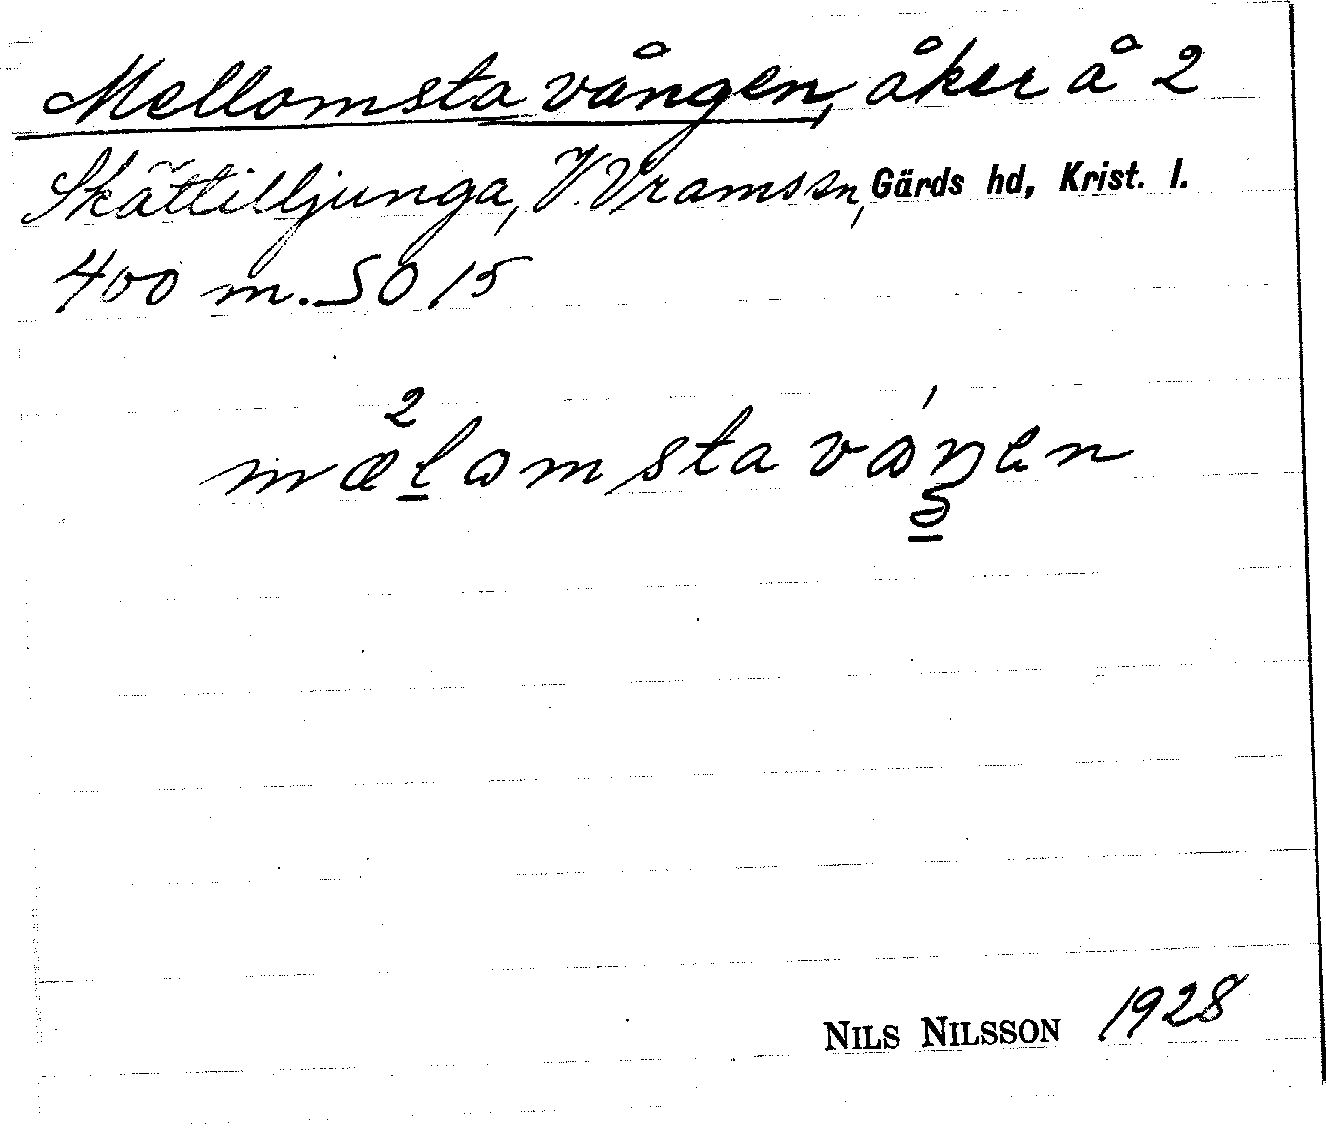 Mellomsta vången, åker å 2
Skättilljunga, V. Vrams sn, Gärds hd, Krist. l.
400 m. SO 15
NILS NILSSON 1928